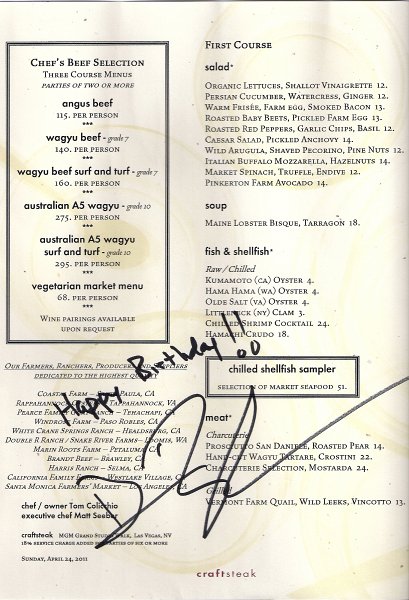 CHEF'S BEEF SELECTION
THREE COURSE MENUS
PARTIES OF TWO OR MORE
angus beef
115. PER PERSON
***
wagyu beef - grade 7
140. PER PERSON
***
wagyu beef surf and turf - grade 7
160. PER PERSON
***
australian A5 wagyu - grade 10
275. PER PERSON
***
australian A5 wagyu
surf and turf - grade 10
295. PER PERSON
***
vegetarian market menu
68. PER PERSON
WINE PAIRINGS AVAILABLE
UPON REQUEST
OUR FARMERS, RANCHERS, PRODUCERS AND SUPPLIERS
DEDICATED TO THE HIGHEST QUALITY
COASTAL FARMS - PAULA, CA
RAPPAHANNOCK - TAPPAHANNOCK, VA
PEARCE FARMS - TEHACHAPI, CA
WINDROSE FARM - PASO ROBLES, CA
WHITE CRANE SPRINGS RANCH - HEALDSBURG, CA
DOUBLE R RANCH / SNAKE RIVER FARMS - LOOMIS, WA
MARIN ROOTS FARM - PETALUMA, CA
BRANDT BEEF - BRAWLEY, CA
HARRIS RANCH - SELMA, CA
CALIFORNIA FAMILY FOODS - WESTLAKE VILLAGE, CA
SANTA MONICA FARMERS' MARKET - LOS ANGELES, CA
chef / owner Tom Colicchio
executive chef Matt Seeber
craftsteak MGM GRAND STUDIO WALK, LAS VEGAS, NV
18% SERVICE CHARGE ADDED FOR PARTIES OF SIX OR MORE
SUNDAY, APRIL 24, 2011
FIRST COURSE
salad*
ORGANIC LETTUCES, SHALLOT VINAIGRETTE 12.
PERSIAN CUCUMBER, WATERCRESS, GINGER 12.
WARM FRISÉE, FARM EGG, SMOKED BACON 13.
ROASTED BABY BEETS, PICKLED FARM EGG 13.
ROASTED RED PEPPERS, GARLIC CHIPS, BASIL 12.
CAESAR SALAD, PICKLED ANCHOVY 14.
WILD ARUGULA, SHAVED PECORINO, PINE NUTS 12.
ITALIAN BUFFALO MOZZARELLA, HAZELNUTS 14.
MARKET SPINACH, TRUFFLE, ENDIVE 12.
PINKERTON FARM AVOCADO 14.
soup
MAINE LOBSTER BISQUE, TARRAGON 18.
fish & shellfish*
Raw / Chilled
KUMAMOTO (CA) OYSTER 4.
HAMA HAMA (WA) OYSTER 4.
OLDE SALT (VA) OYSTER 4.
LITTLENECK (NY) CLAM 3.
CHILLED SHRIMP COCKTAIL 24.
HAMACHI CRUDO 18.
chilled shellfish sampler
SELECTION OF MARKET SEAFOOD 51.
meat*
Charcuterie
PROSCIUTTO SAN DANIELE, ROASTED PEAR 14.
HAND-CUT WAGYU TARTARE, CROSTINI 22.
CHARCUTERIE SELECTION, MOSTARDA 24.
Grilled
VERMONT FARM QUAIL, WILD LEEKS, VINCOTTO 13.
Happy Birthday!!
craftsteak